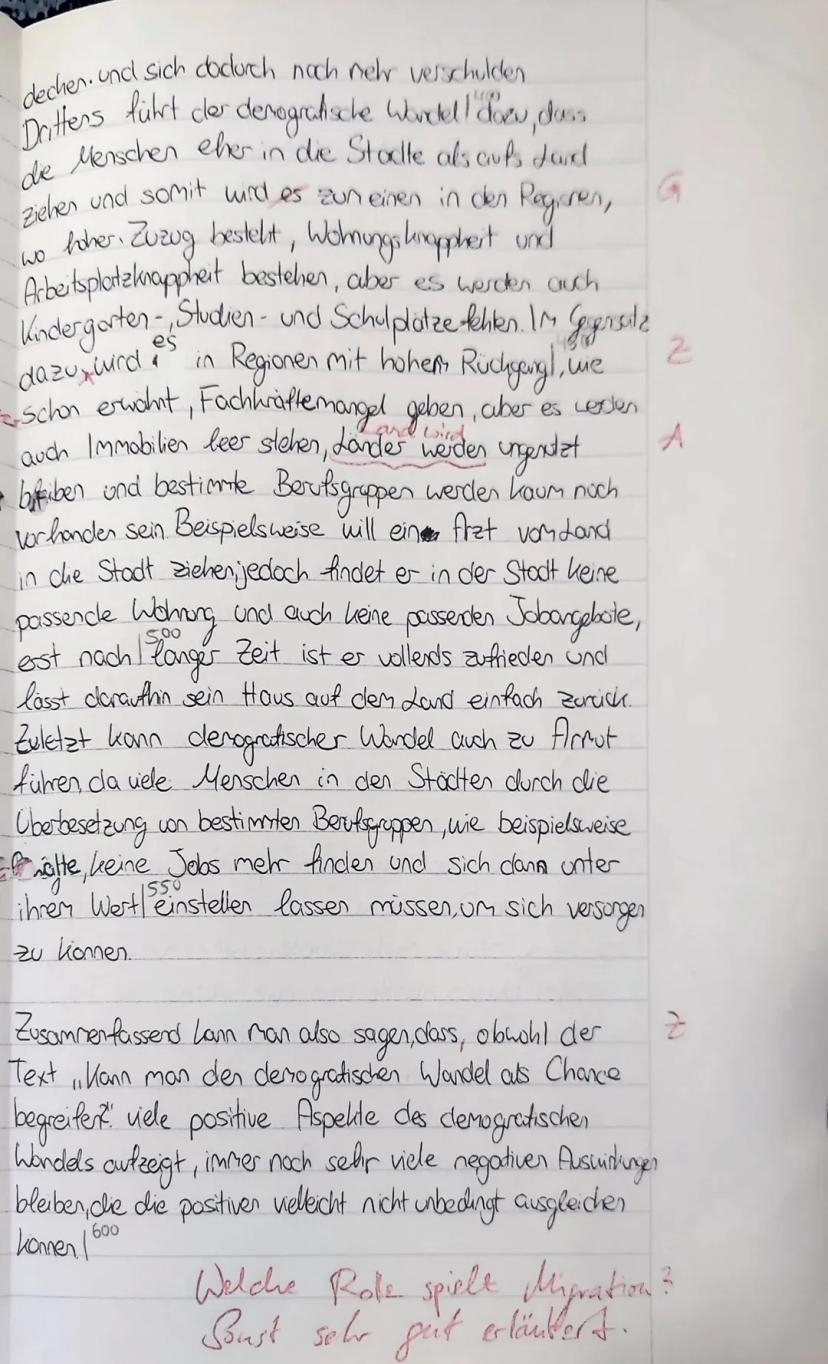 decken. und sich dadurch noch mehr verschulden
Drittens führt der demografische Wandel | dazu, dass
die Menschen eher in die Städte als aufs Land
ziehen und somit wird es zum einen in den Regionen, G
wo hoher Zuzug besteht, Wohnungsknappheit und
Arbeitsplatzknappheit bestehen, aber es werden auch
Kindergarten-, Studien- und Schulplätze fehlen. Im Gegensatz
dazu wird es in Regionen mit hohem Rückgang |, wie Z
schon erwähnt, Fachkräftemangel geben, aber es werden
auch Immobilien leer stehen, Länder werden ungenutzt A
and wird
bleiben und bestimmte Berufsgruppen werden kaum noch
vorhanden sein. Beispielsweise will ein Arzt vom Land
in die Stadt ziehen, jedoch findet er in der Stadt keine
passende Wohnung und auch keine passenden Jobangebote,
erst nach |500 langer Zeit ist er vollends zufrieden und
lässt daraufhin sein Haus auf dem Land einfach zurück.
Zuletzt kann demografischer Wandel auch zu Armut
führen, da viele Menschen in den Städten durch die
Überbesetzung von bestimmten Berufsgruppen, wie beispielsweise
keine Jobs mehr finden und sich dann unter
ihrem Wert |550 einstellen lassen müssen, um sich versorgen
zu können.
Zusammenfassend kann man also sagen, dass, obwohl der Z
Text „Kann man den demografischen Wandel als Chance
begreifen?" viele positive Aspekte des demografischen
Wandels aufzeigt, immer noch sehr viele negativen Auswirkungen
bleiben, die die positiven vielleicht nicht unbedingt ausgleichen
können | 600
Welche Rolle spielt Migration?
Sonst sehr gut erläutert.